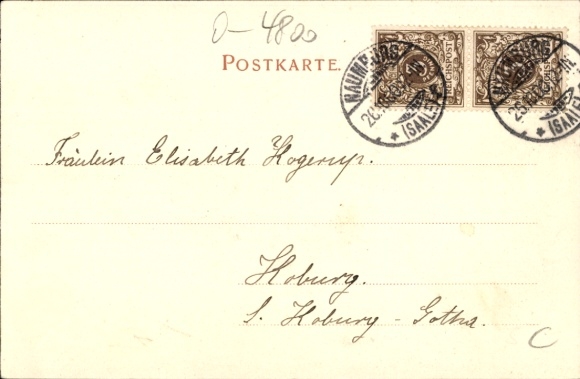 0-4800
POSTKARTE.
NAUMBURG
(SAALE)
REICHSPOST
NAUMBURG
(SAALE)
Fräulein Elisabeth Hogerup.
Koburg.
S. Koburg - Gotha.
C